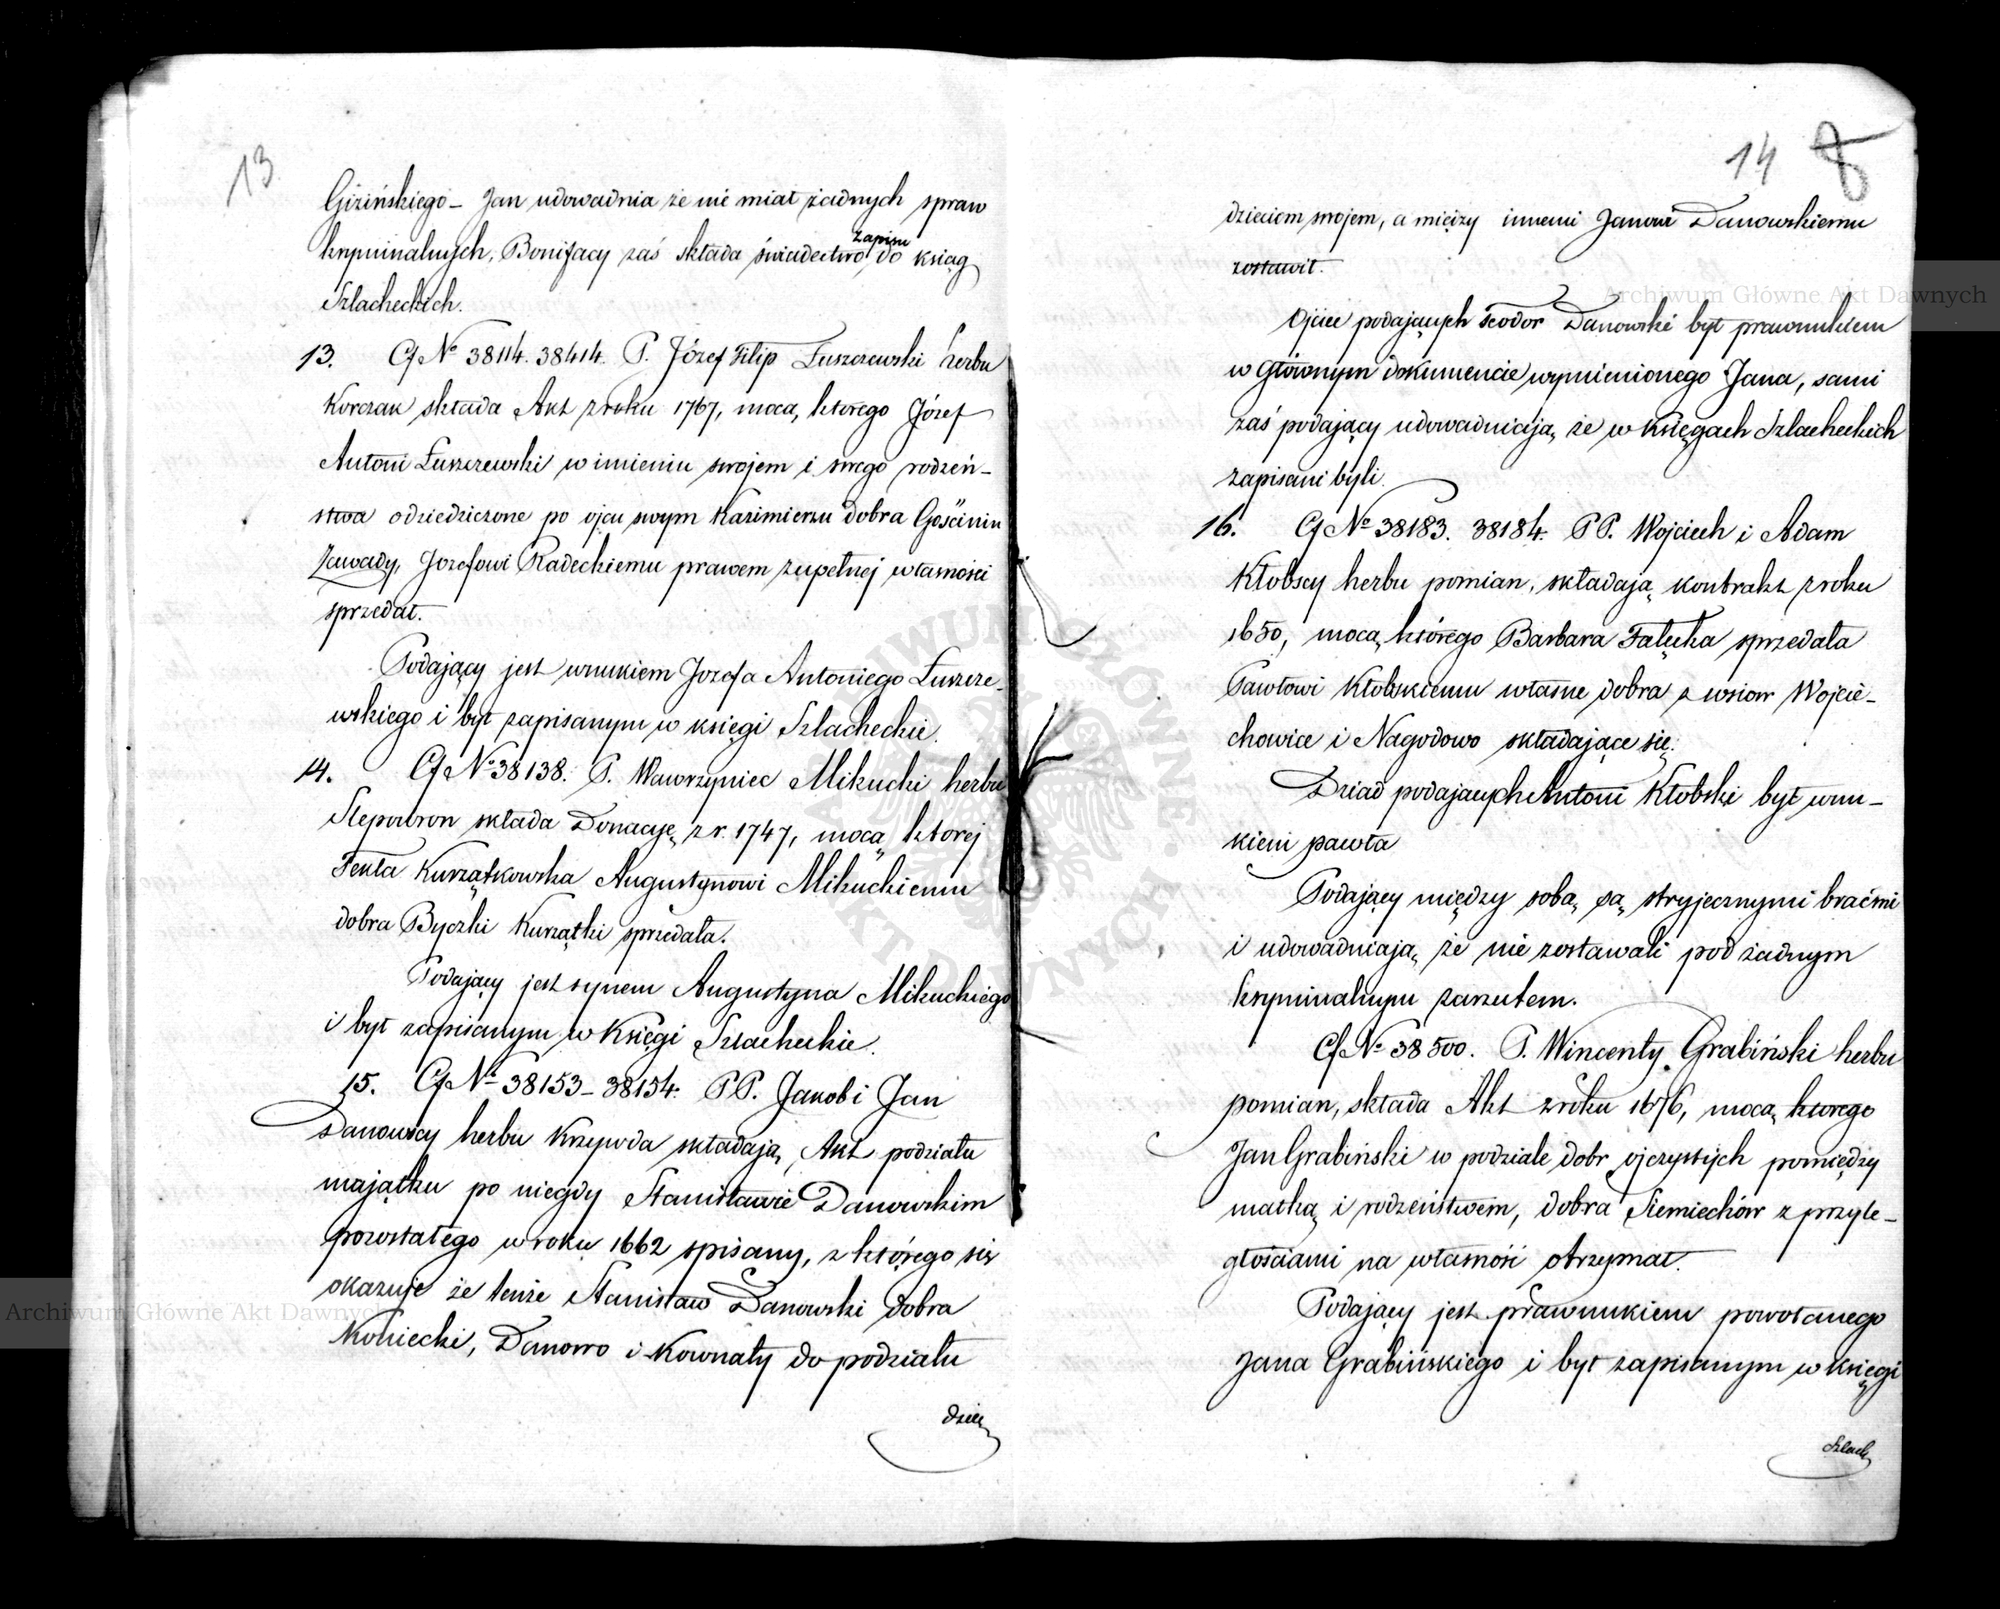 13
Giżińskiego – Jan udowadnia że nie miał żadnych spraw
kryminalnych, Bonifacy zaś składa świadectwo zapisu do ksiąg
Szlacheckich.
13. Cf № 38114. 38414. P. Józef Filip Łuszczewski herbu
Korczak składa Akt z roku 1767, mocą, którego Józef
Antoni Łuszczewski w imieniu swojem i swego rodzeń-
stwa odziedziczone po ojcu swym Kazimierzu dobra Gościnin
Zawady, Jozefowi Radeckiemu prawem zupełnej własności
sprzedał.
Podający jest wnukiem Jozefa Antoniego Łuszcze-
wskiego i był zapisanym w księgi Szlacheckie.
14. Cf № 38138. P. Wawrzyniec Mikucki herbu
Slepowron składa Donacyę z r. 1747, mocą ktorej
Tekla Kurządkowska Augustynowi Mikuckiemu
dobra Byczki Kurzątki sprzedała.
Podający jest synem Augustyna Mikuckiego
i był zapisanym w Księgi Szlacheckie.
15. Cf № 38153 – 38154. PP. Jakob i Jan
Danowscy herbu Krzywda składają, Akt podziału
majątku po niegdy Stanisławie Danowskim
pozostałego w roku 1662 spisany, z którego się
okazuje że tenże Stanisław Danowski dobra
Danowo i Kownaty do podziału
dziec
14 8
dzieciom swojem, a między innemi Janowi Danowskiemu
zostawił.
Ojciec podających Teodor Danowski był prawnukiem
w głównym dokumencie wymienionego Jana, sami
zaś podający udowadniają, że w Księgach Szlacheckich
zapisani byli.
16. Cf № 38183. 38184. PP. Wojciech i Adam
Kłobscy herbu pomian, składają kontrakt z roku
1650, mocą, którego Barbara Fałęcka sprzedała
Pawłowi Kłobskiemu własne dobra z wsiow Wojcie-
chowice i Nagodowo składające się.
Dziad podających Antoni Kłobski był wnu-
kiem pawła
Podający między sobą, są, stryjecznymi braćmi
i udowadniają, że nie zostawali pod żadnym
kryminalnym zarzutem.
Cf № 38500. P. Wincenty Grabiński herbu
pomian, składa Akt z roku 1676, mocą, ktorego
Jan Grabiński w podziale dobr ojczystych pomiędzy
matką i rodzeństwem, dobra Siemiechów z przyle-
głościami na własność otrzymał.
Podający jest prawnukiem powołanego
Jana Grabińskiego i był zapisanym w księgi
Szlach
Archiwum Główne Akt Dawnych
Archiwum Główne Akt Dawnych
ARCHIWUM GŁÓWNE AKT DAWNYCH